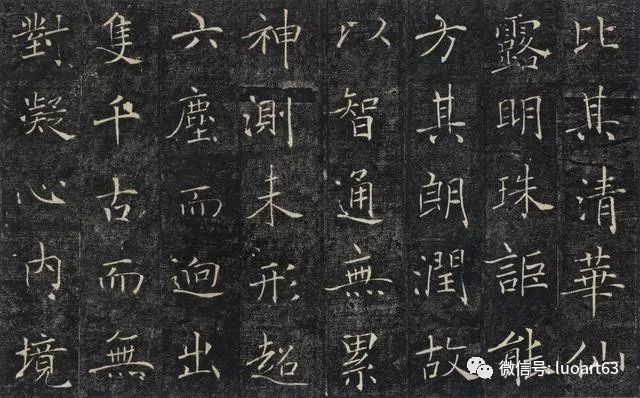 比其清華仙
露明珠詎能
方其朗潤故
以智通無累
神測未形超
六塵而迥出
隻千古而無
對凝心內境
微信号: luoart63